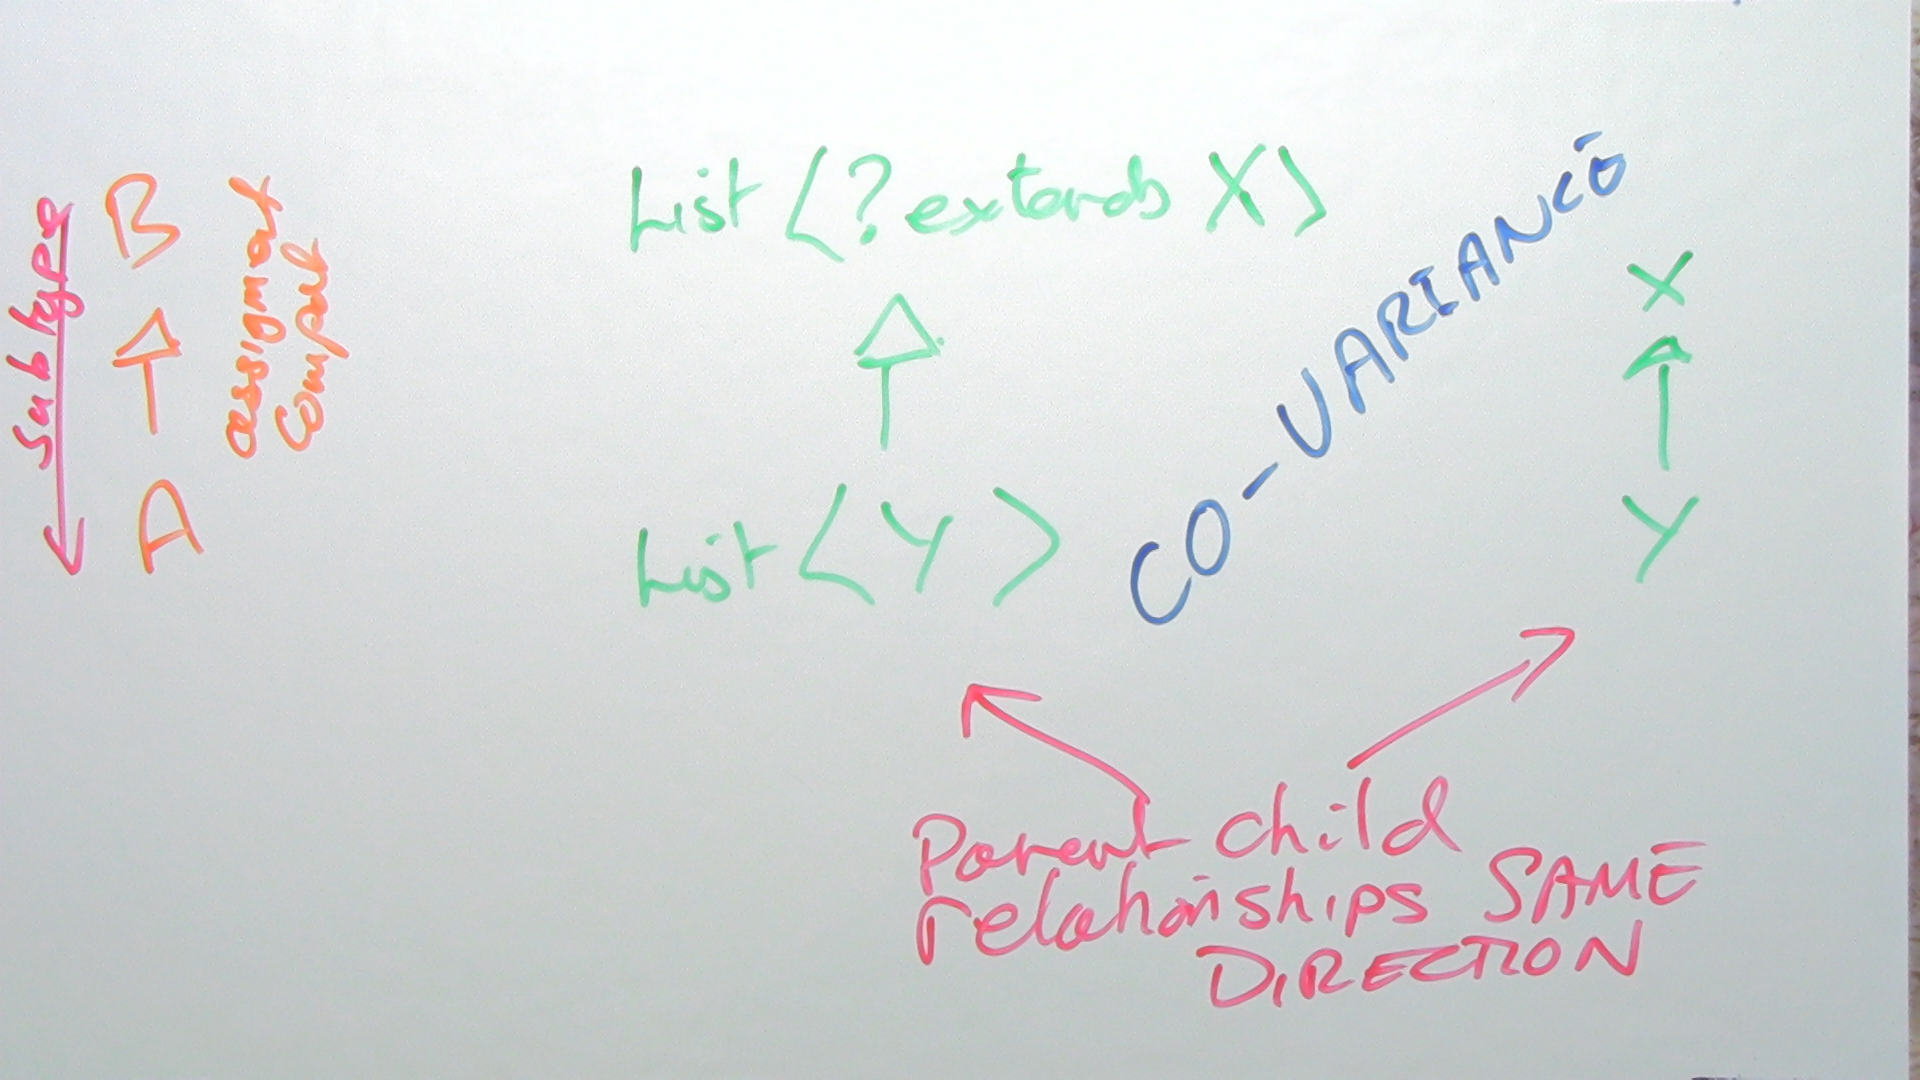 Subtype
B
A
assignment
Compat
List <? extends X>
List <Y>
CO-VARIANCE
X
Y
Parent child
relationships SAME
DIRECTION